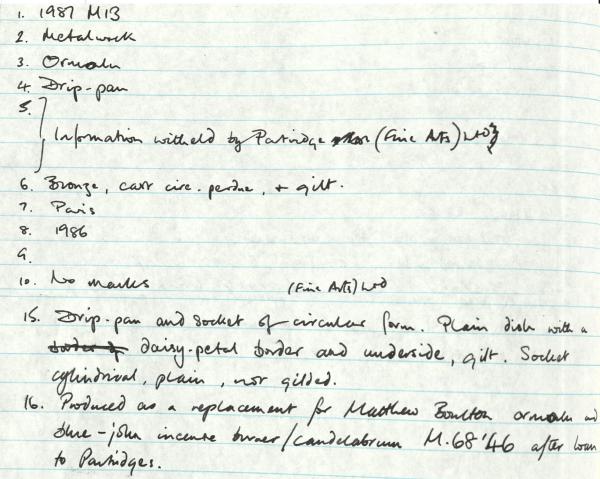 1. 1987 M13
2. Metalwork
3. Ormolu
4. Drip-pan
5.
Information witheld by Partridge (Fine Arts) Ltd
6. Bronze, cast cire-perdue, + gilt.
7. Paris
8. 1986
9.
10. No marks (Fine Arts) Ltd
15. Drip-pan and socket of circular form. Plain dish with a
border of daisy-petal border and underside, gilt. Socket
cylindrical, plain, not gilded.
16. Produced as a replacement for Matthew Boulton ormolu and
blue-john incense burner/candelabrum M.68'46 after loan
to Partridges.